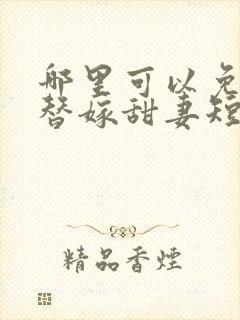 哪里可以免
替嫁甜妻短
精品香煙